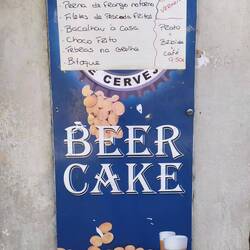 Perna de Frango no forno
Filetes de Pescada Fritos
Bacalhau à Casa
- Choco Frito
- Febras na Grelha
- Bitoque
Prato
Bebida
café
9.50€
DE CERVEJ
BEER
CAKE